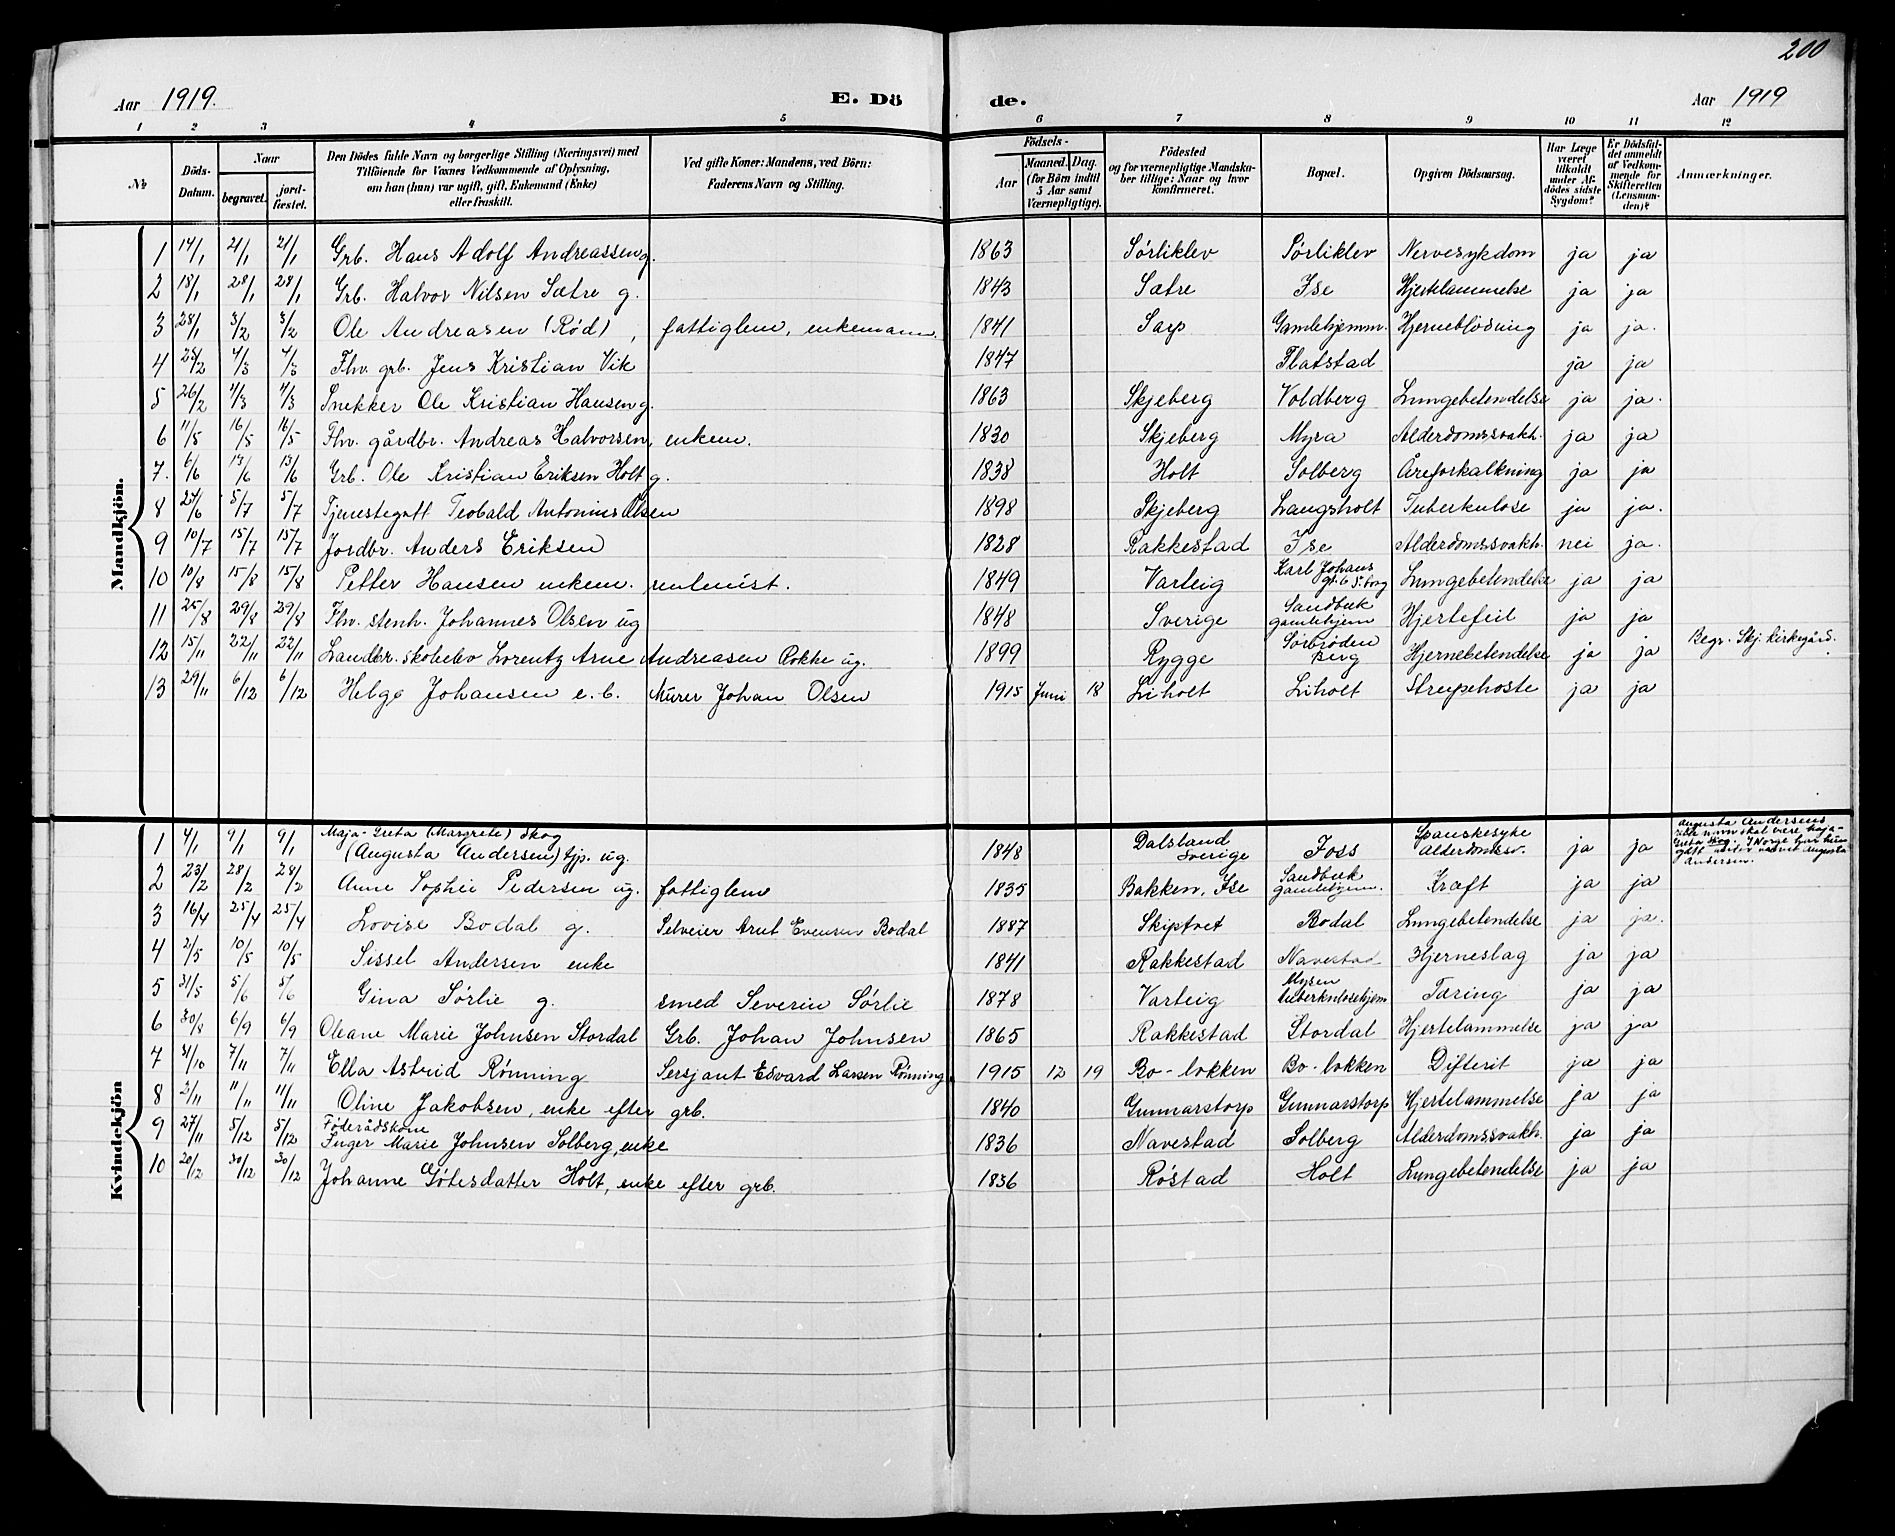 200
Aar 1919. E. Dö de. Aar 1919
1 2 3 4 5 6 7 8 9 10 11 12
№ Döds-Datum. Naar begravet. jord-fæstet. Den Dödes fulde Navn og borgerlige Stilling (Næringsvei) med Tilföiende for Voxnes Vedkommende af Oplysning, om han (hun) var ugift, gift, Enkemand (Enke) eller fraskilt. Ved gifte Koner: Mandens, ved Börn: Faderens Navn og Stilling. Födsels- Aar Maaned. Dag. (for Börn indtil 5 Aar samt Værnepligtige). Födested og for værnepligtige Mandskaber tillige: Naar og hvor konfirmeret. Bopæl. Opgiven Dödsaarsag. Har Læge været tilkaldt under Afdödes sidste Sygdom? Er Dödsfaldet anmeldt af Vedkommende for Skifteretten (Lensmanden)? Anmærkninger.
Mandkjön.
1 14/1 21/1 21/1 Grb. Hans Adolf Andreassen g. 1863 Sørliklev Sørliklev Nervesykdom ja ja
2 18/1 28/1 28/1 Grb. Halvor Nilsen Sætre g. 1843 Sætre Ise Hjertelammelse ja ja
3 28/1 3/2 3/2 Ole Andreasen (Rød), fattiglem, enkemann. 1841 Sarp Gamlehjemm. Hjerneblødning ja ja.
4 25/2 4/3 4/3 Fhv. grb. Jens Kristian Vik 1847 Flatstad ja ja
5 26/2 4/3 4/3 Snekker Ole Kristian Hansen g. 1863 Skjeberg Voldberg Lungebetendelse ja ja.
6 11/5 16/5 16/5 Fhv. gårdbr. Andreas Halvorsen, enkem. 1830 Skjeberg Myra Alderdomssvakh. ja ja
7. 6/6 13/6 13/6 Grb. Ole Kristian Eriksen Holt g. 1838 Holt Solberg Åreforkalkning ja ja
8 27/6 5/7 5/7 Tjenestegutt Teobald Antonius Olsen 1898 Skjeberg Langsholt Tuberkulose ja ja.
9 10/7 15/7 15/7 Jordbr. Anders Eriksen 1828 Rakkestad Ise Alderdomssvakh. nei ja.
10 10/8 15/8 15/8 Petter Hansen enkem. rentenist. 1849 Varteig Karl Johans gt. 6 S.borg Lungebetendelse ja ja
11 25/8 29/8 29/8 Fhv. stenh. Johannes Olsen ug 1848 Sverige Sandbæk gamlehjem Hjertefeil ja ja
12 15/11 22/11 22/11 Landbr. skoleelev Lorentz Arne Andreasen Rokke ug. 1899 Rygge Sørbrøden Berg Hjernebetendelse ja ja Begr. Skj. kirkegård.
13 29/11 6/12 6/12 Helge Johansen e. b. Murer Johan Olsen 1915 Juni 18 Liholt Liholt Strupehoste ja ja
Kvindekjön
1 4/1 9/1 9/1 Maja-Greta (Margrete) Skog (Augusta Andersen) tjp. ug. 1848 Dalsland Sverige Foss Spanskesyke Alderdomssv. ja ja Augusta Andersens navn skal være Maja-Greta Skog. I Norge har hun navnet Augusta Andersen.
2 23/2 28/2 28/2 Anne Sophie Pedersen ug. fattiglem 1835 Bakken, Ise Sandbæk gamlehjem. Kræft ja ja
3 16/4 25/4 25/4 Lovise Bodal g. Selveier Arnt Evensen Bodal 1887 Skiptvet Bodal Lungebetendelse ja ja.
4 2/5 10/5 10/5 Sissel Andersen enke 1841 Rakkestad Navestad Hjerneslag ja ja
5 31/5 5/6 5/6 Gina Sørlie g. smed Severin Sørlie 1878 Varteig Mysen tuberkulosehjem Tæring ja ja
6 30/8 6/9 6/9 Oleane Marie Johnsen Stordal Grb. Johan Johnsen 1865 Rakkestad Stordal Hjertelammelse ja ja
7 31/10 7/11 7/11 Ella Astrid Rønning Sersjant Edvard Larsen Rønning 1915 12 19 Bo-løkken Bo-løkken Difterit ja ja
8 3/11 11/11 11/11 Oline Jakobsen, enke efter grb. 1840 Gunnarstorp Gunnarstorp Hjertelammelse ja ja
9 27/11 5/12 5/12 Føderådskone Inger Marie Johnsen Solberg, enke 1836 Navestad Solberg Alderdomssvakh. ja ja
10 20/12 30/12 30/12 Johanne Götesdatter Holt, enke efter grb. 1836 Røstad Holt Lungebetendelse ja ja